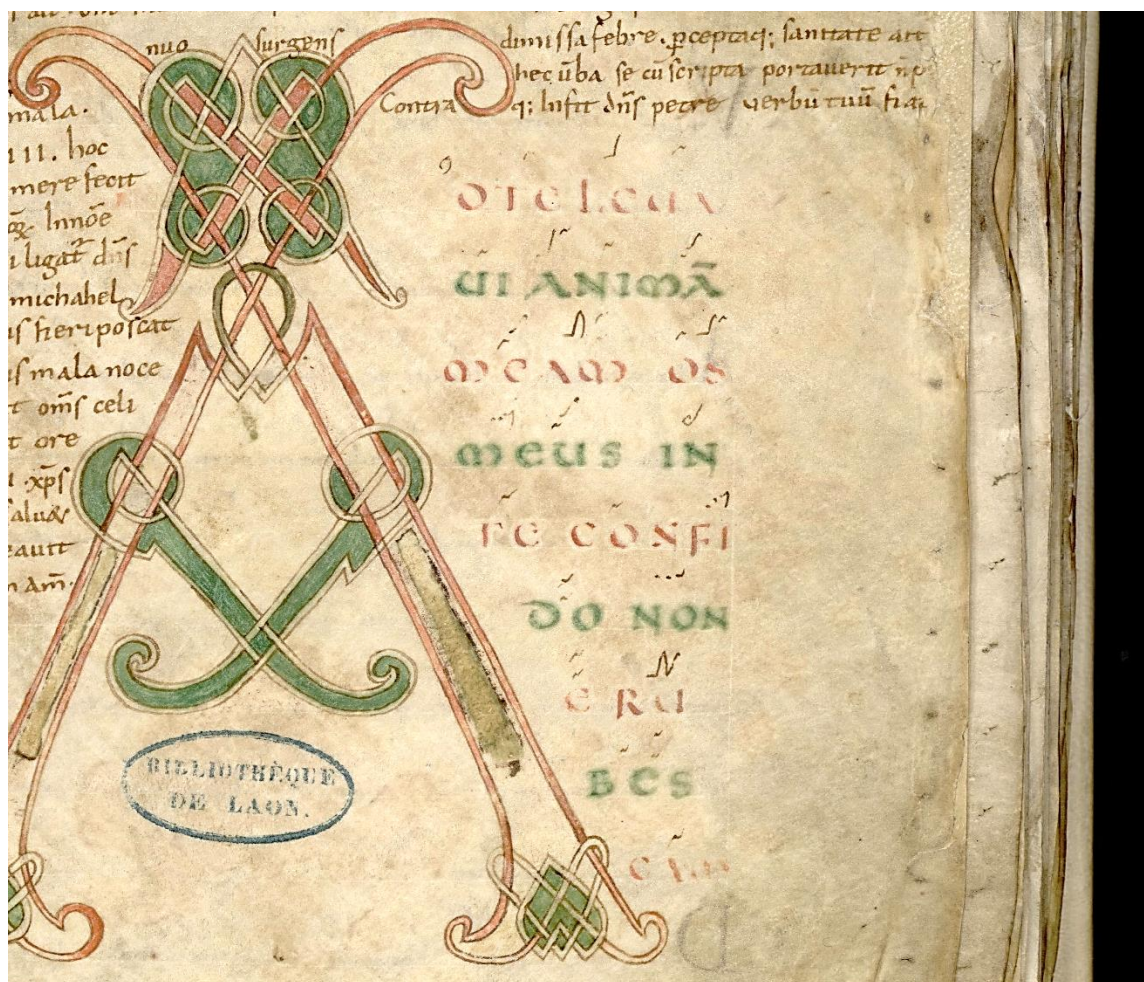 nuo surgens dimissa febre. ꝑceptaq; sanitate att
hec ūba se cū scripta portauerit
Contra q; Infit dn̄s petre uerbū tuū fiat
mala.
III. hoc
mere fecit
Innoē
ligat̄ dn̄s
michahel
fieri poscat
mala noce
om̄s celi
ore
xp̄s
salua&
eauit
am̄.
D TE LEUA
UI ANIMĀ
MEAM DS
MEUS IN
TE CONFI
DO NON
ERU
BES
CAM
BIBLIOTHÈQUE
DE LAON.